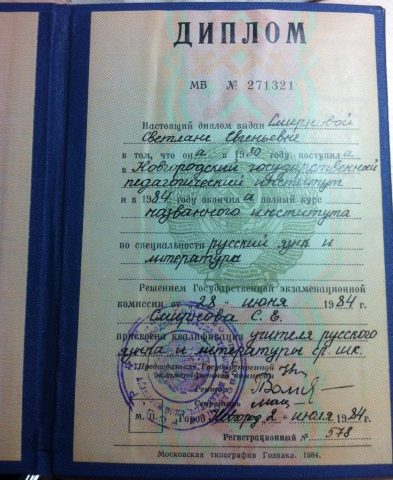 ДИПЛОМ
МВ № 271321
Настоящий диплом выдан Смирновой
Светлане Евгеньевне
в том, что она в 1980 году поступила
в Новгородский государственный
педагогический институт
и в 1984 году окончила полный курс
названного института
по специальности русский язык и
литература
Решением Государственной экзаменационной
комиссии от "28" июня 1984 г.
Смирнова С. Е.
присвоена квалификация учителя русского
языка и литературы ср. шк.
Председатель Государственной
экзаменационной
Ректор
Секретарь
М. П. Город Новгород, 2 июля 1984 г.
Регистрационный № 578
Московская типография Гознака. 1984.